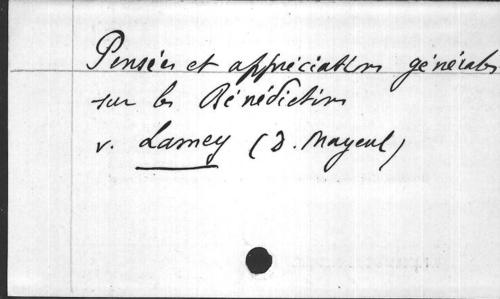 Pensées et appréciations générales
sur les Bénédictins
v. Lamey (D. Mayeul)